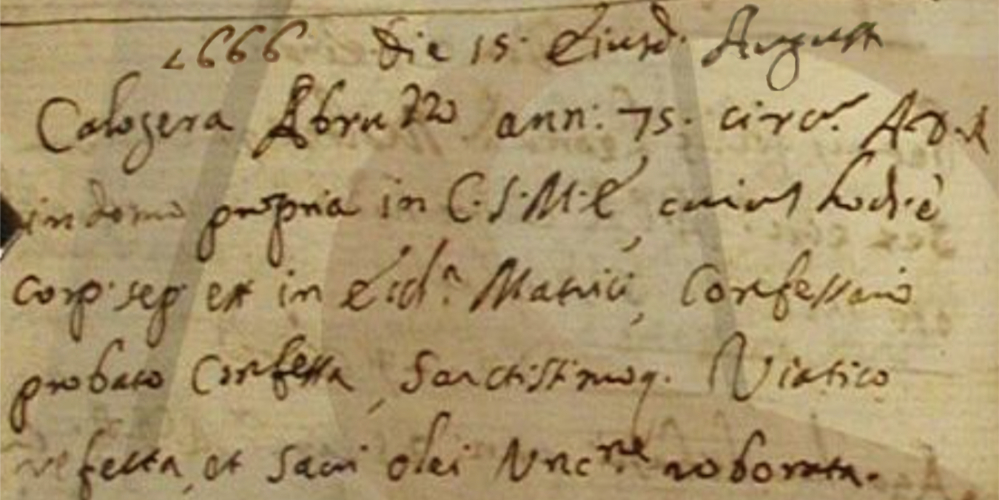 1666 Die 15. Eiusd. Augusti
Calogera Abruzzo ann: 75. circ.ª A.D.R
in domo propria in C.S.M.E, cuius hodiè
corp. sep. est in Eid.ª Matrici, Confessario
probato Confessa, Sanctissimoq. Viatico
refecta, et Sacri olei Unc.ne roborata.